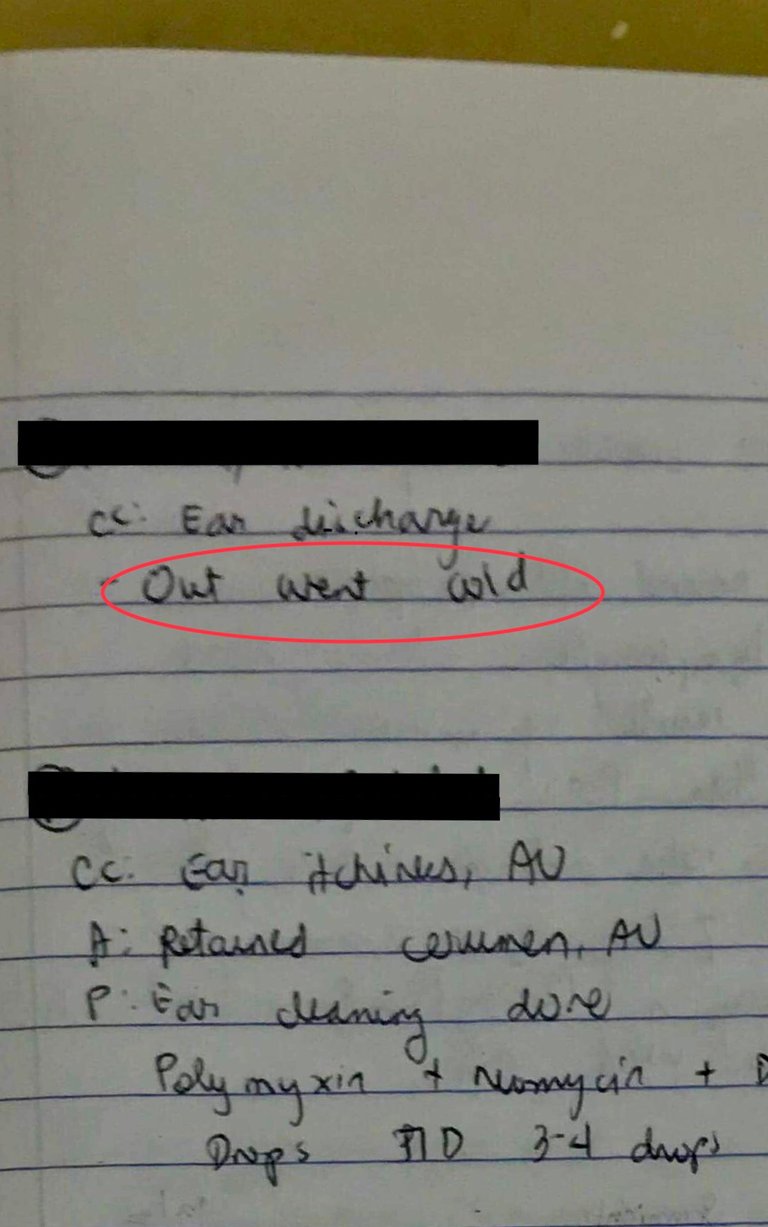 CC: Ear discharge
- Out went cold
CC: Ear itchines, AU
A: Retained cerumen, AU
P: Ear cleaning done
Polymyxin + neomycin + D
Drops TID 3-4 drops